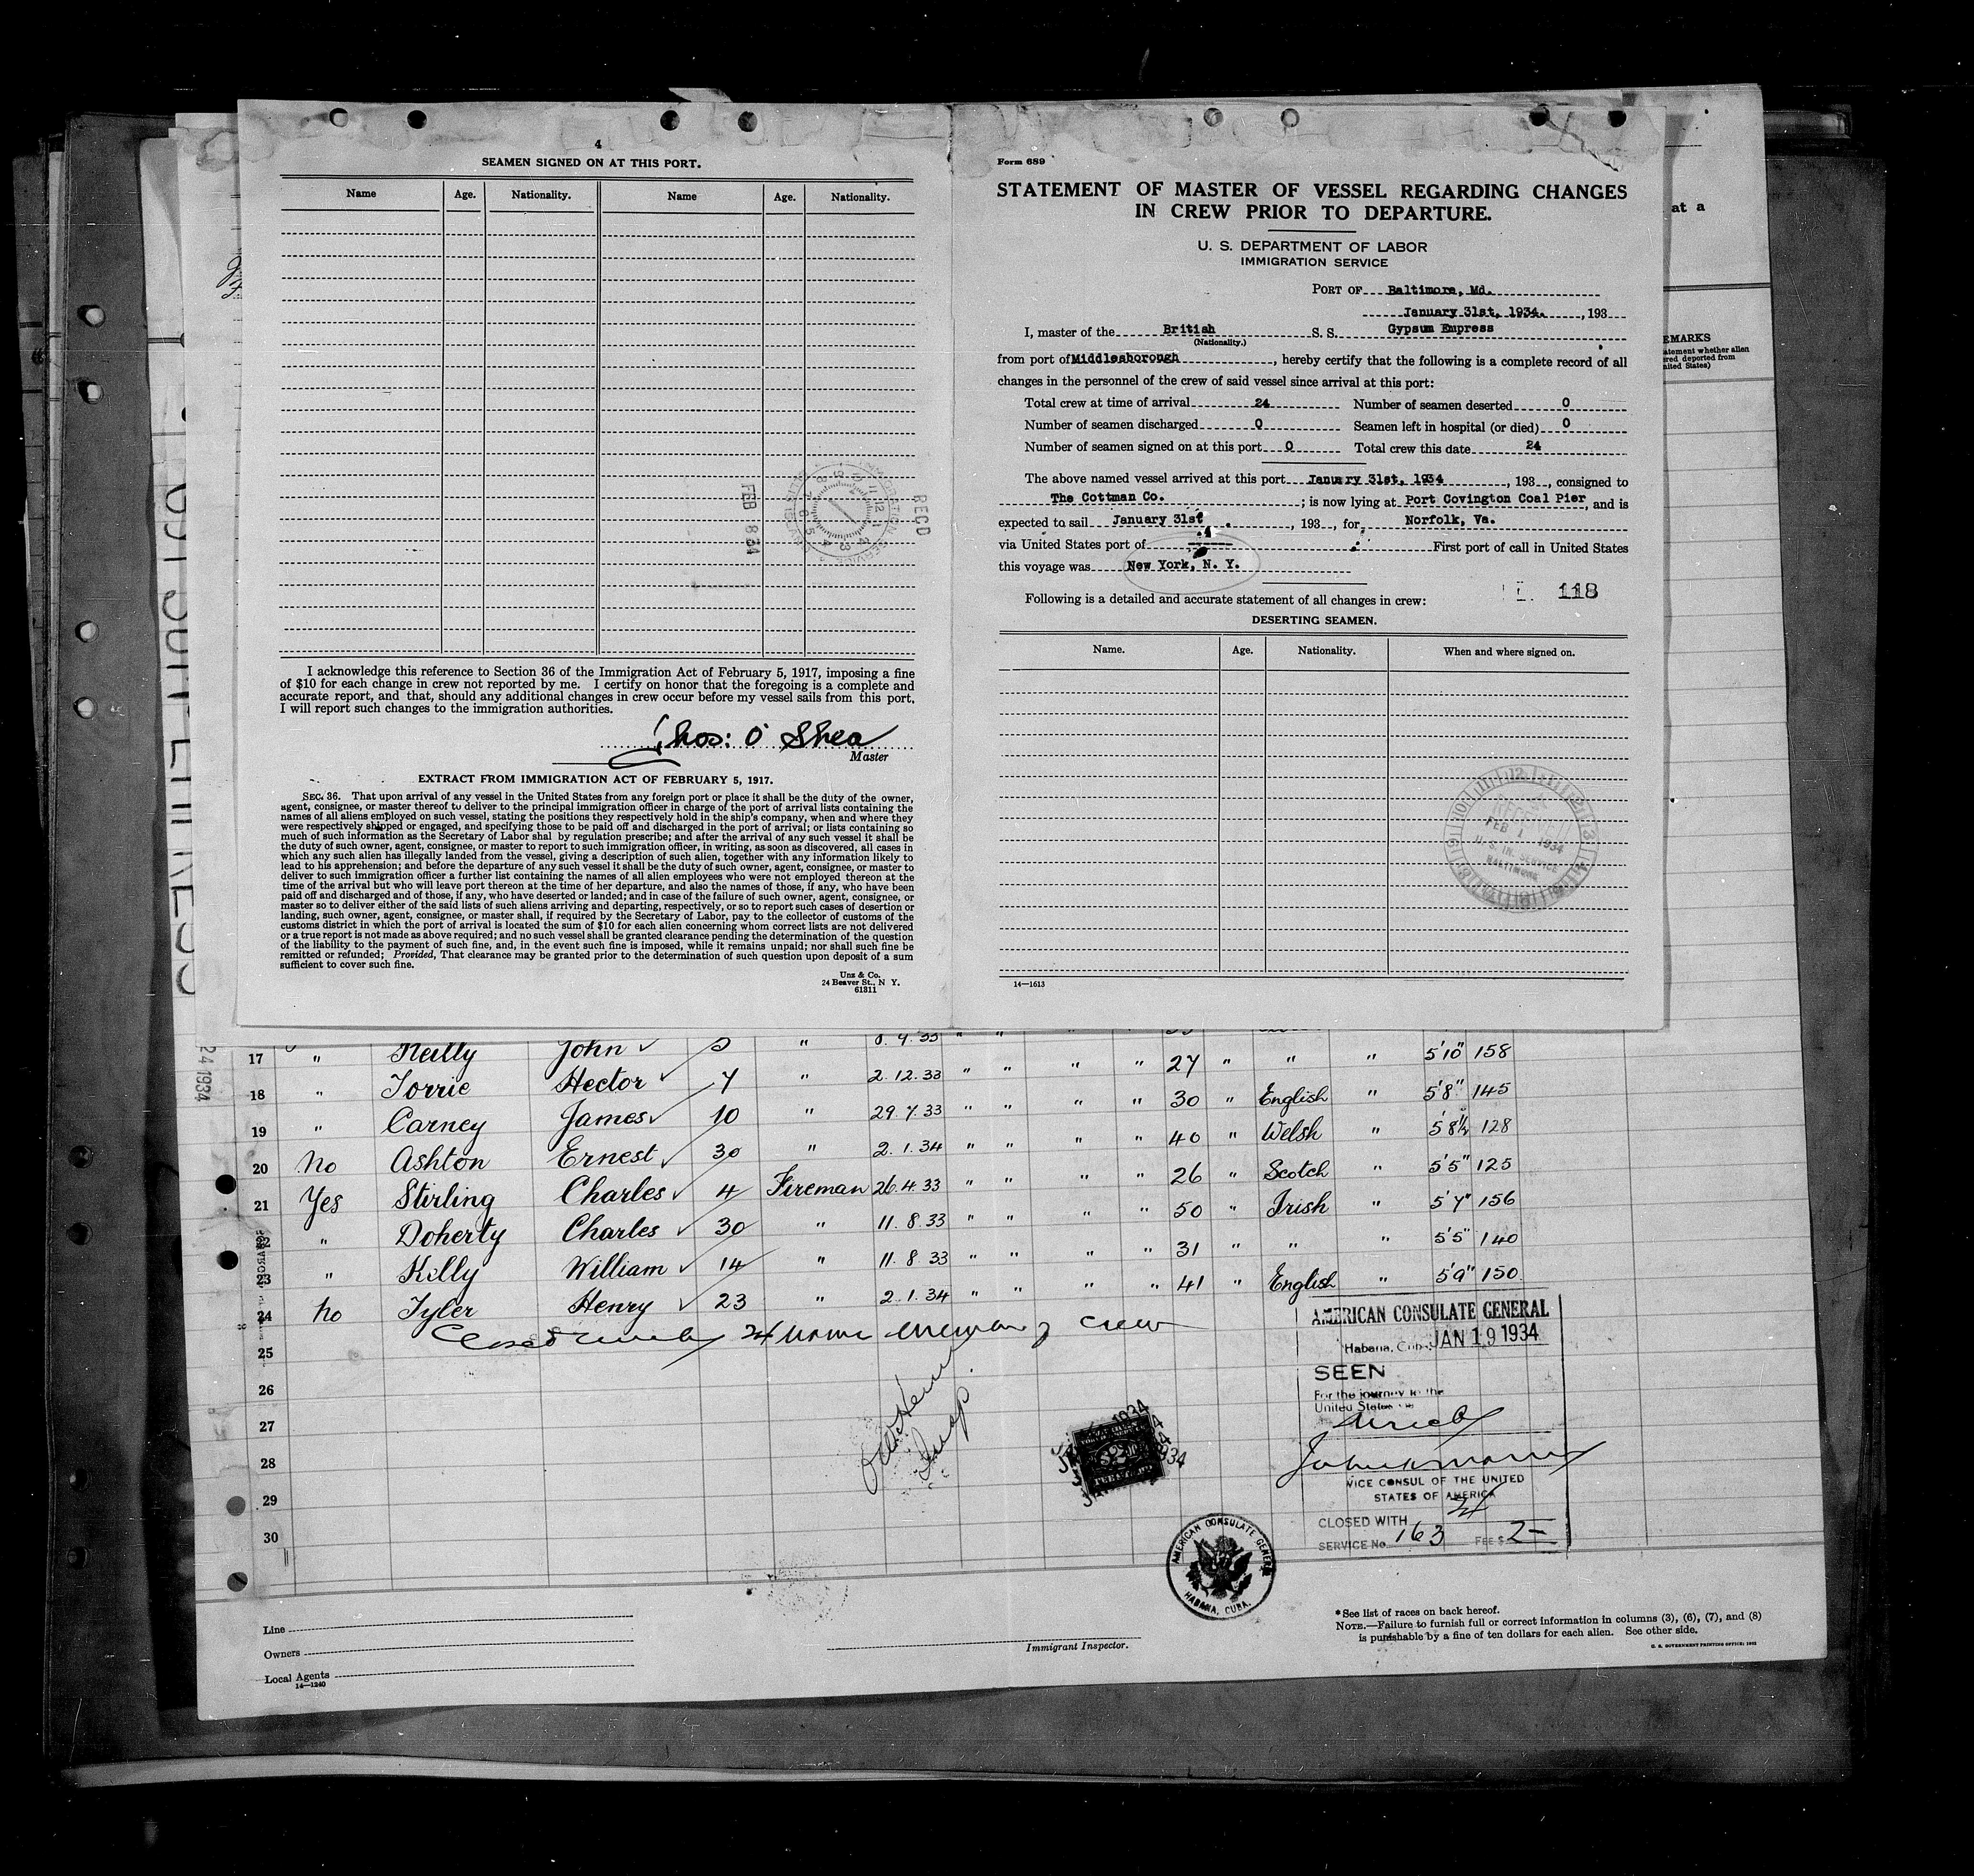 4
SEAMEN SIGNED ON AT THIS PORT.
Name Age. Nationality. Name Age. Nationality.
FEB 8 34
RECD
I acknowledge this reference to Section 36 of the Immigration Act of February 5, 1917, imposing a fine
of $10 for each change in crew not reported by me. I certify on honor that the foregoing is a complete and
accurate report, and that, should any additional changes in crew occur before my vessel sails from this port,
I will report such changes to the immigration authorities.
Thos: O'Shea
Master
EXTRACT FROM IMMIGRATION ACT OF FEBRUARY 5, 1917.
SEC. 36. That upon arrival of any vessel in the United States from any foreign port or place it shall be the duty of the owner,
agent, consignee, or master thereof to deliver to the principal immigration officer in charge of the port of arrival lists containing the
names of all aliens employed on such vessel, stating the positions they respectively hold in the ship's company, when and where they
were respectively shipped or engaged, and specifying those to be paid off and discharged in the port of arrival; or lists containing so
much of such information as the Secretary of Labor shal by regulation prescribe; and after the arrival of any such vessel it shall be
the duty of such owner, agent, consignee, or master to report to such immigration officer, in writing, as soon as discovered, all cases in
which any such alien has illegally landed from the vessel, giving a description of such alien, together with any information likely to
lead to his apprehension; and before the departure of any such vessel it shall be the duty of such owner, agent, consignee, or master to
deliver to such immigration officer a further list containing the names of all alien employees who were not employed thereon at the
time of the arrival but who will leave port thereon at the time of her departure, and also the names of those, if any, who have been
paid off and discharged and of those, if any, who have deserted or landed; and in case of the failure of such owner, agent, consignee, or
master so to deliver either of the said lists of such aliens arriving and departing, respectively, or so to report such cases of desertion or
landing, such owner, agent, consignee, or master shall, if required by the Secretary of Labor, pay to the collector of customs of the
customs district in which the port of arrival is located the sum of $10 for each alien concerning whom correct lists are not delivered
or a true report is not made as above required; and no such vessel shall be granted clearance pending the determination of the question
of the liability to the payment of such fine, and, in the event such fine is imposed, while it remains unpaid; nor shall such fine be
remitted or refunded; Provided, That clearance may be granted prior to the determination of such question upon deposit of a sum
sufficient to cover such fine.
Unz & Co.
24 Beaver St., N Y.
61311
Form 689
STATEMENT OF MASTER OF VESSEL REGARDING CHANGES
IN CREW PRIOR TO DEPARTURE.
U. S. DEPARTMENT OF LABOR
IMMIGRATION SERVICE
PORT OF Baltimore, Md.
January 31st, 1934. , 193
I, master of the British S. S. Gypsum Empress
(Nationality.)
from port of Middlesborough , hereby certify that the following is a complete record of all
changes in the personnel of the crew of said vessel since arrival at this port:
Total crew at time of arrival 24 Number of seamen deserted 0
Number of seamen discharged 0 Seamen left in hospital (or died) 0
Number of seamen signed on at this port 0 Total crew this date 24
The above named vessel arrived at this port January 31st, 1934 , 193 , consigned to
The Cottman Co. ; is now lying at Port Covington Coal Pier, and is
expected to sail January 31st , 193 , for Norfolk, Va.
via United States port of First port of call in United States
this voyage was New York, N. Y.
118
Following is a detailed and accurate statement of all changes in crew:
DESERTING SEAMEN.
Name. Age. Nationality. When and where signed on.
FEB 1 1934
U. S. IM. SERVICE
BALTIMORE
14—1613
at a
EMARKS
atement whether alien
red deported from
nited States)
24 1934
17 " Reilly John " 27 " " " 5'10" 158
18 " Torrie Hector 7 " 2.12.33 " " " " 30 " English " 5'8" 145
19 " Carney James 10 " 29.7.33 " " " " 40 " Welsh " 5'8½ 128
20 No Ashton Ernest 30 " 2.1.34 " " " " 26 " Scotch " 5'5" 125
21 Yes Stirling Charles 4 Fireman 26.4.33 " " " " 50 " Irish " 5'7" 156
22 " Doherty Charles 30 " 11.8.33 " " " " 31 " " " 5'5" 140
23 " Kelly William 14 " 11.8.33 " " " " 41 " English " 5'9" 150
24 No Tyler Henry 23 " 2.1.34 " "
24 crew
25
26
27
28
29
30
AMERICAN CONSULATE GENERAL
Habana, Cuba JAN 19 1934
SEEN
For the journey to the
United States
VICE CONSUL OF THE UNITED
STATES OF AMERICA
CLOSED WITH 24
SERVICE No. 163 FEE $ 2—
AMERICAN CONSULATE GENERAL
HABANA, CUBA.
Line
Owners
Local Agents
14—1240
Immigrant Inspector.
*See list of races on back hereof.
NOTE.—Failure to furnish full or correct information in columns (3), (6), (7), and (8)
is punishable by a fine of ten dollars for each alien. See other side.